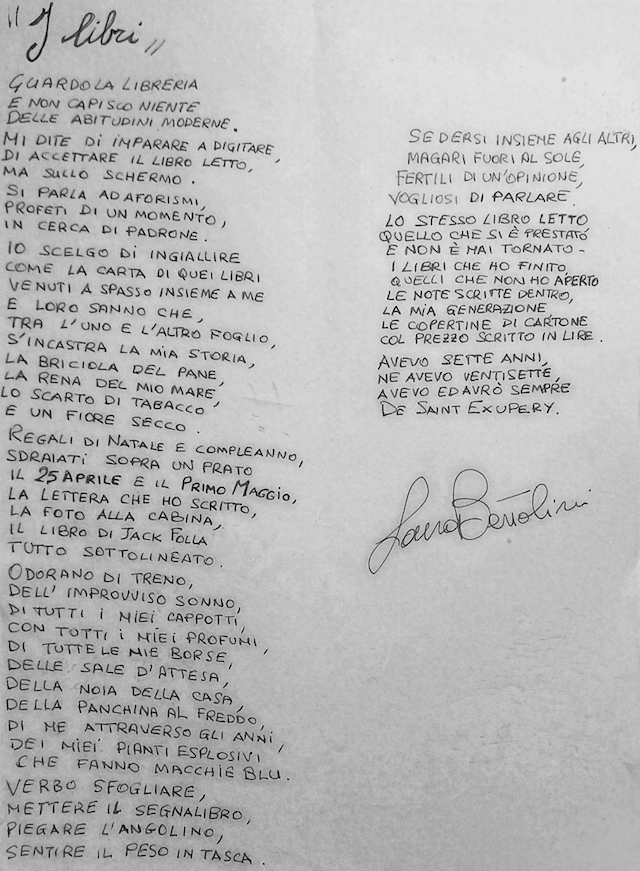 "I libri"
GUARDO LA LIBRERIA
E NON CAPISCO NIENTE
DELLE ABITUDINI MODERNE.
MI DITE DI IMPARARE A DIGITARE,
DI ACCETTARE IL LIBRO LETTO,
MA SULLO SCHERMO.
SI PARLA AD AFORISMI,
PROFETI DI UN MOMENTO,
IN CERCA DI PADRONE.
IO SCELGO DI INGIALLIRE
COME LA CARTA DI QUEI LIBRI
VENUTI A SPASSO INSIEME A ME
E LORO SANNO CHE,
TRA L'UNO E L'ALTRO FOGLIO,
S'INCASTRA LA MIA STORIA,
LA BRICIOLA DEL PANE,
LA RENA DEL MIO MARE
LO SCARTO DI TABACCO
E UN FIORE SECCO.
REGALI DI NATALE E COMPLEANNO,
SDRAIATI SOPRA UN PRATO
IL 25 APRILE E IL PRIMO MAGGIO,
LA LETTERA CHE HO SCRITTO,
LA FOTO ALLA CABINA,
IL LIBRO DI JACK FOLLA
TUTTO SOTTOLINEATO.
ODORANO DI TRENO,
DELL'IMPROVVISO SONNO,
DI TUTTI I MIEI CAPPOTTI,
CON TUTTI I MIEI PROFUMI,
DI TUTTE LE MIE BORSE,
DELLE SALE D'ATTESA,
DELLA NOIA DELLA CASA,
DELLA PANCHINA AL FREDDO,
DI ME ATTRAVERSO GLI ANNI,
DEI MIEI PIANTI ESPLOSIVI
CHE FANNO MACCHIE BLU.
VERBO SFOGLIARE,
METTERE IL SEGNALIBRO,
PIEGARE L'ANGOLINO,
SENTIRE IL PESO IN TASCA.
SEDERSI INSIEME AGLI ALTRI,
MAGARI FUORI AL SOLE,
FERTILI DI UN'OPINIONE,
VOGLIOSI DI PARLARE.
LO STESSO LIBRO LETTO
QUELLO CHE SI È PRESTATO
E NON È MAI TORNATO-
I LIBRI CHE HO FINITO,
QUELLI CHE NON HO APERTO
LE NOTE SCRITTE DENTRO,
LA MIA GENERAZIONE
LE COPERTINE DI CARTONE
COL PREZZO SCRITTO IN LIRE.
AVEVO SETTE ANNI,
NE AVEVO VENTISETTE,
AVEVO ED AVRÒ SEMPRE
DE SAINT EXUPERY.